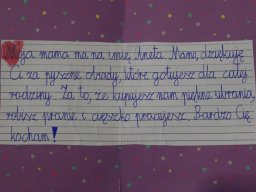 Moja mama ma na imię Aneta. Mamo, dziękuję
Ci za pyszne obiady, które gotujesz dla całej
rodziny. Za to, że kupujesz nam piękne ubrania,
robisz pranie i ciężko pracujesz. Bardzo Cię
kocham!